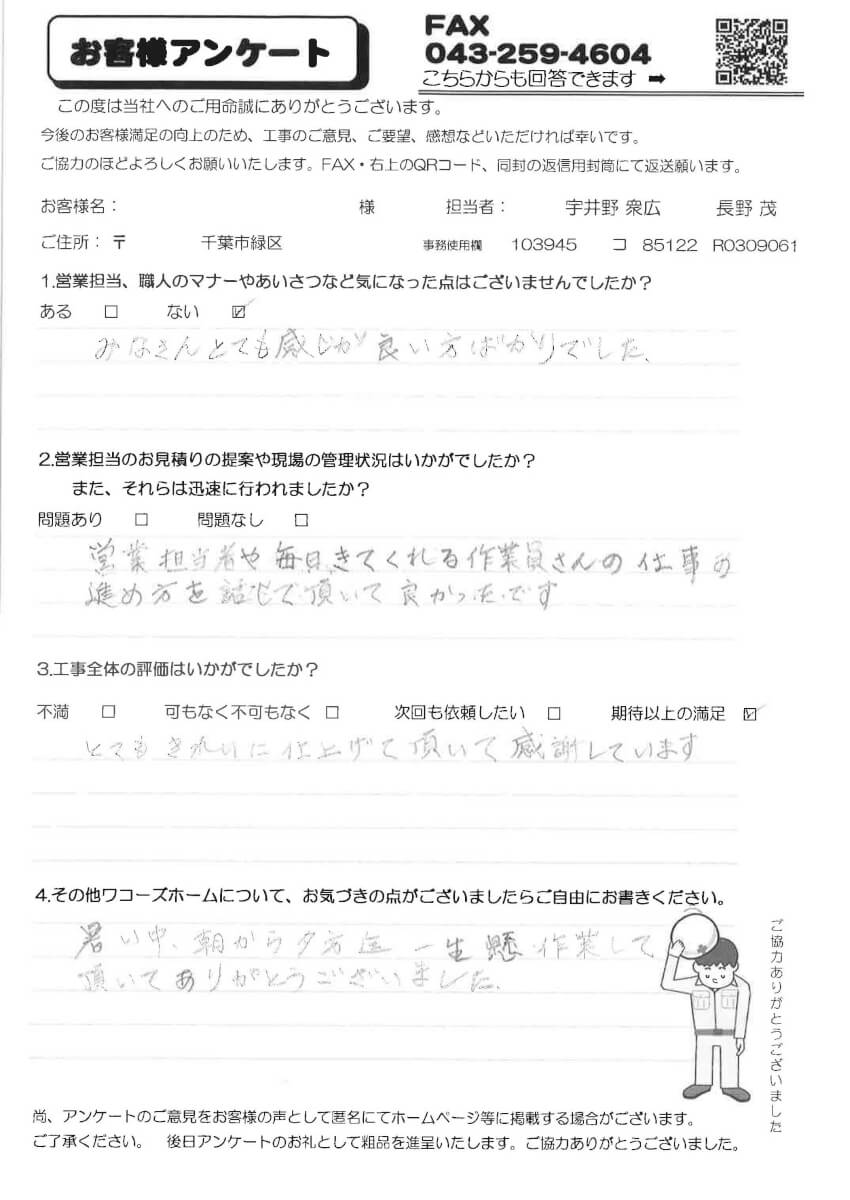 お客様アンケート
FAX
043-259-4604
こちらからも回答できます ➡
この度は当社へのご用命誠にありがとうございます。
今後のお客様満足の向上のため、工事のご意見、ご要望、感想などいただければ幸いです。
ご協力のほどよろしくお願いいたします。FAX・右上のQRコード、同封の返信用封筒にて返送願います。
お客様名： 様 担当者： 宇井野 衆広 長野 茂
ご住所：〒 千葉市緑区 事務使用欄 103945 コ 85122 R0309061
1.営業担当、職人のマナーやあいさつなど気になった点はございませんでしたか？
ある □ ない ☑
みなさんとても感じが良い方ばかりでした、
2.営業担当のお見積りの提案や現場の管理状況はいかがでしたか？
また、それらは迅速に行われましたか？
問題あり □ 問題なし □
営業担当者や毎日きてくれる作業員さんの仕事の
進め方を話じで頂いて良かったです
3.工事全体の評価はいかがでしたか？
不満 □ 可もなく不可もなく □ 次回も依頼したい □ 期待以上の満足 ☑
とてもきれいに仕上げて頂いて感謝しています
4.その他ワコーズホームについて、お気づきの点がございましたらご自由にお書きください。
暑い中、朝から夕方迄一生懸作業して
頂いてありがとうございました、
ご協力ありがとうございました
尚、アンケートのご意見をお客様の声として匿名にてホームページ等に掲載する場合がございます。
ご了承ください。 後日アンケートのお礼として粗品を進呈いたします。ご協力ありがとうございました。